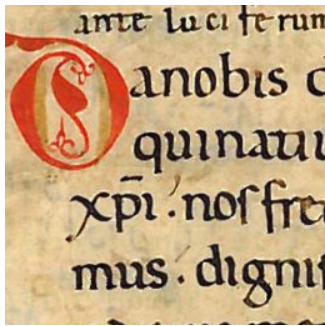 ante luciferum
Danobis d
quinatiu
xp̄i noſfre
mus. digni